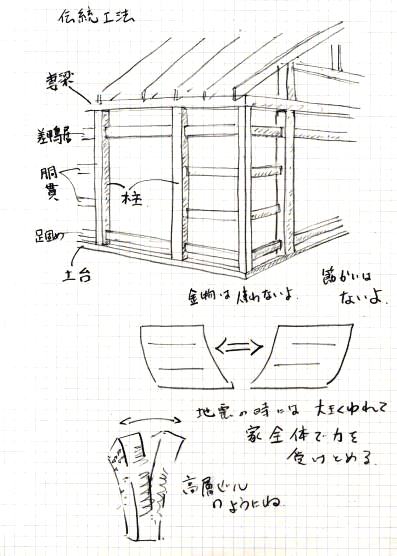 伝統工法
軒梁
差鴨居
胴
貫
足固め
土台
柱
金物は使わないよ.
筋かいは
ないよ.
地震の時には 大きくゆれて
家全体で力を
受けとめる.
高層ビル
のようにね.